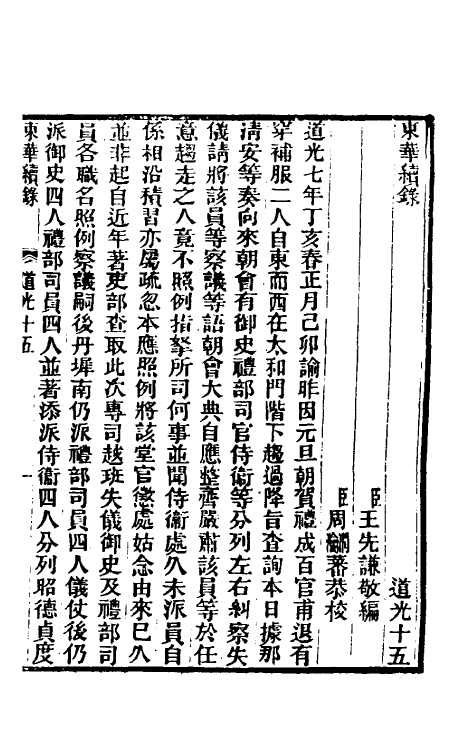 東華續錄 道光十五
臣王先謙敬編
臣周潤蕃恭校
道光七年丁亥春正月己卯諭昨因元旦朝賀禮成百官甫退有
穿補服二人自東而西在太和門階下趨過降旨查詢本日據那
清安等奏向來朝會有御史禮部司官侍衞等分列左右糾察失
儀請將該員等察議等語朝會大典自應整齊嚴肅該員等於任
意趨走之人竟不照例指拏所司何事並聞侍衞處久未派員自
係相沿積習亦屬疏忽本應照例將該堂官懲處姑念由來已久
並非起自近年著吏部查取此次專司越班失儀御史及禮部司
員各職名照例察議嗣後丹墀南仍派禮部司員四人儀仗後仍
派御史四人禮部司員四人並著添派侍衞四人分列昭德貞度
東華續錄 道光十五 一